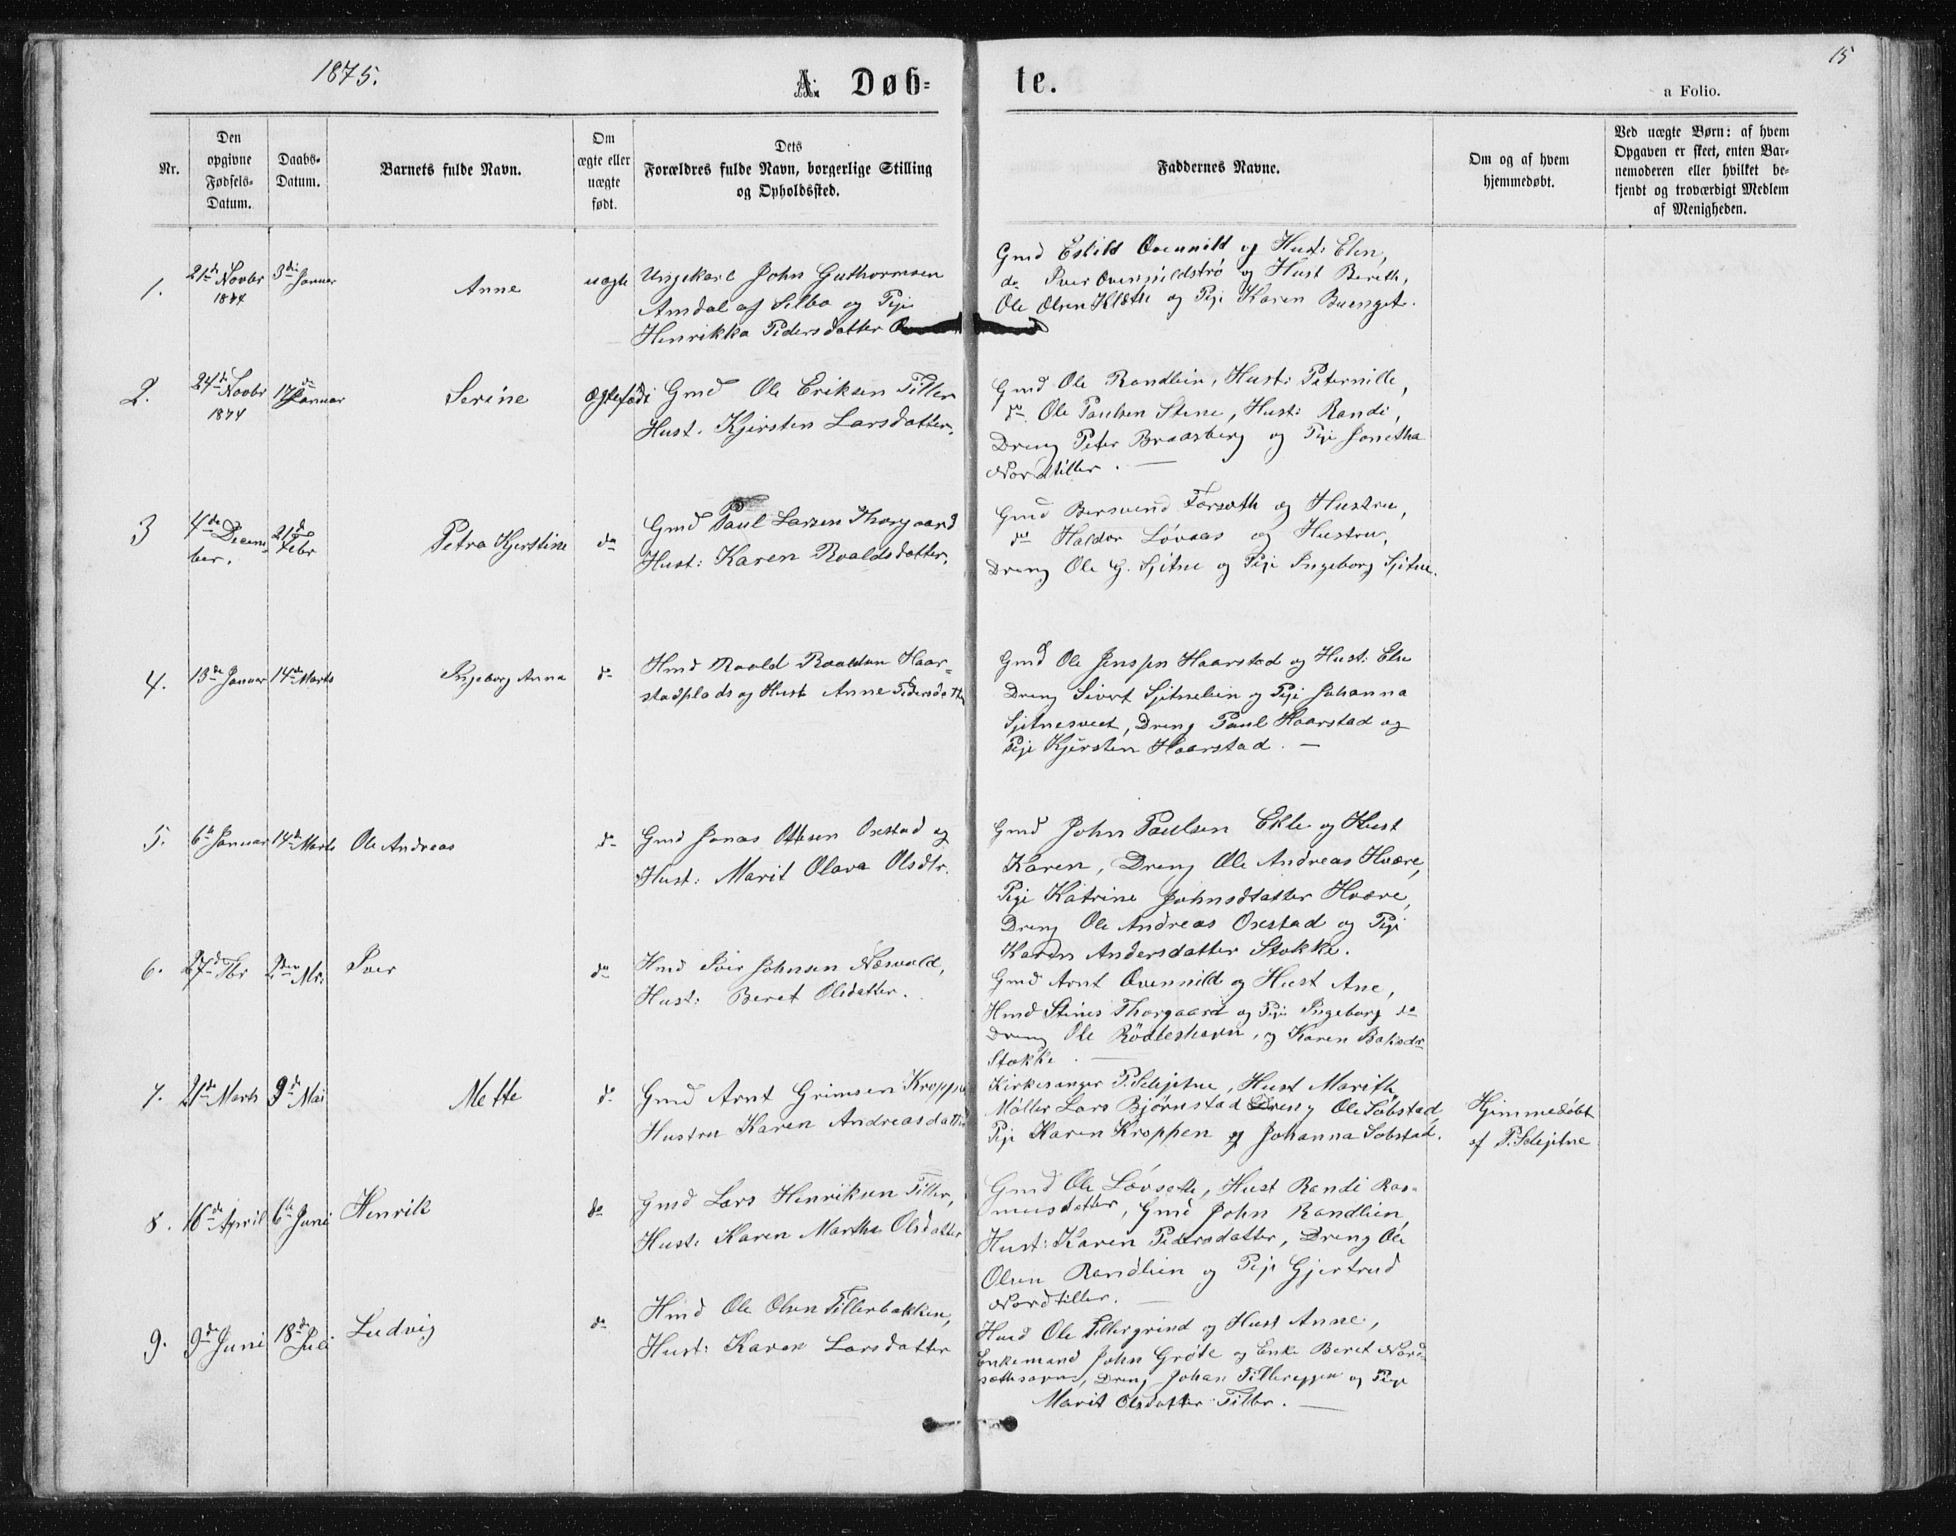 1875.
A. Døb=
te.
15
a Folio.
Nr.
Den opgivne Fødsels-Datum.
Daabs-Datum.
Barnets fulde Navn.
Om ægte eller uægte født.
Dets Forældres fulde Navn, borgerlige Stilling og Opholdssted.
Faddernes Navne.
Om og af hvem hjemmedøbt.
Ved uægte Børn: af hvem Opgaven er skeet, enten Barnemoderen eller hvilket bekjendt og troværdigt Medlem af Menigheden.
1.
21de Novbr 1874
3di Januar
Anne
uægte
Ungekarl John Guthormsen
Amdal af Selbo og Pige
Henrikka Pedersdatter
Gmd Eskild Ovennild og Hust: Elen,
do Iver Overnildstrø og Hust Bereth,
Ole Olsen Klæth og Pige Karen Buenget.
2.
24de Novbr 1874
17de Januar
Serine
Ægtefødt
Gmd Ole Eriksen Tiller
Hust. Kjersten Larsdatter.
Gmd Ole Randlien, Hust: Peternille,
do Ole Paulsen Stene, Hust: Randi,
Dreng Peter Braasberg og Pige Jonetha
Nordtiller.
3
4de Decem
ber.
21de Febr
Petra Kjerstine
do
Gmd Paul Larsen Thorgaard
Hust: Karen Roaldsdatter.
Gmd Bersvend Forsæth og Hustru,
do Haldor Løvaas og Hustru,
Dreng Ole G. Sjetne og Pige Ingeborg Sjetne.
4.
13de Januar
14de Marts
Ingeborg Anna
do
Hmd Roald Roaldsen Haar-
stadplads og Hust Anne Pedersdatter
Gmd Ole Jensen Haarstad og Hust: Else
Dreng Sivert Sjetnelien og Pige Johanna
Sjetnesveet, Dreng Paul Haarstad og
Pige Kjersten Haarstad. —
5.
6te Januar
14de Marts
Ole Andreas
do
Gmd Jonas Ottesen Oxstad og
Hust: Marit Olava Olsdtr.
Gmd John Paulsen Ekle og Hust
Karen, Dreng Ole Andreas Hvære,
Pige Katrine Johnsdtatter Hvære,
Dreng Ole Andreas Oxestad og Pige
Karen Andersdatter Stokke.
6.
27de Fbr
2den Mr:
Iver
do
Hmd Iver Johnsen Næsvold,
Hust: Beret Olsdatter.
Gmd Arnt Ovennild og Hust Ane,
Hmd Stines Thorgaard og Pige Ingeborg do
Dreng Ole Rödleshavn, og Karen
Stokke. —
7.
21de Marts
9de Mai
Mette
do
Gmd Arnt Grimsen Kroppen
Hustru Karen Andreasdatter
Kirkesanger P. Selejetne, Hust Marith
Møller Lars Bjørnstad Dreng Ole Søbstad
Pige Karen Kroppen og Johanna Sobstad.
Hjemmedöbt
af P. Selejetne
8.
16de April
6te Juni
Henrik
do
Gmd Lars Henriksen Tiller,
Hust: Karen Martha Olsdatter
Gmd Ole Løvseth, Hust Randi Ras-
musdatter, Gmd John Randlien,
Hust: Karen Pedersdatter, Dreng Ole
Olsen Randlien og Pige Gjertrud
Nordtiller. —
9.
9de Juni
18de Juli
Ludvig
do
Hmd Ole Olsen Tillerbakken,
Hust: Karen Larsdatter
Hmd Ole Tillergrind og Hust Anne,
Enkemand John Grøte og Enke Beret Nord
sæthsavne, Dreng Johan Tillereggen og Pige
Marit Olsdatter Tiller. —